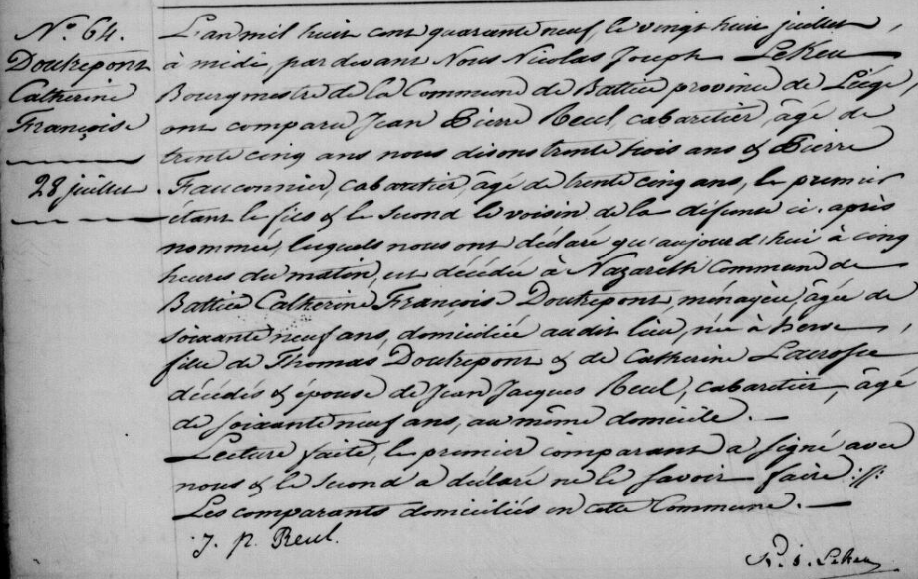 N.° 64.
Doutrepont
Catherine
Françoise
28 juillet.
L'an mil huit cent quarante neuf, le vingt huit juillet,
à midi, pardevant Nous Nicolas Joseph Lekeu
Bourgmestre de la Commune de Battice province de Liége,
ont comparu Jean Pierre Reul, cabaretier, âgé de
trente cinq ans nous disons trente trois ans & Pierre
Fauconnier, cabaretier, âgé de trente cinq ans, le premier
étant le fils & le second le voisin de la défunte ci-après
nommée, lesquels nous ont déclaré qu'aujourd'hui à cinq
heures du matin, est décédée à Nazareth Commune de
Battice Catherine Françoise Doutrepont, ménagère, âgée de
soixante neuf ans, domiciliée audit lieu, née à herve,
fille de Thomas Doutrepont & de Catherine
décédés & épouse de Jean Jacques Reul, cabaretier, âgé
de soixante neuf ans, au même domicile.
Lecture faite, le premier comparant a signé avec
nous & le second a déclaré ne le savoir faire ://:
Les comparants domiciliés en cette Commune.
J. p. Reul.
N. j. Lekeu